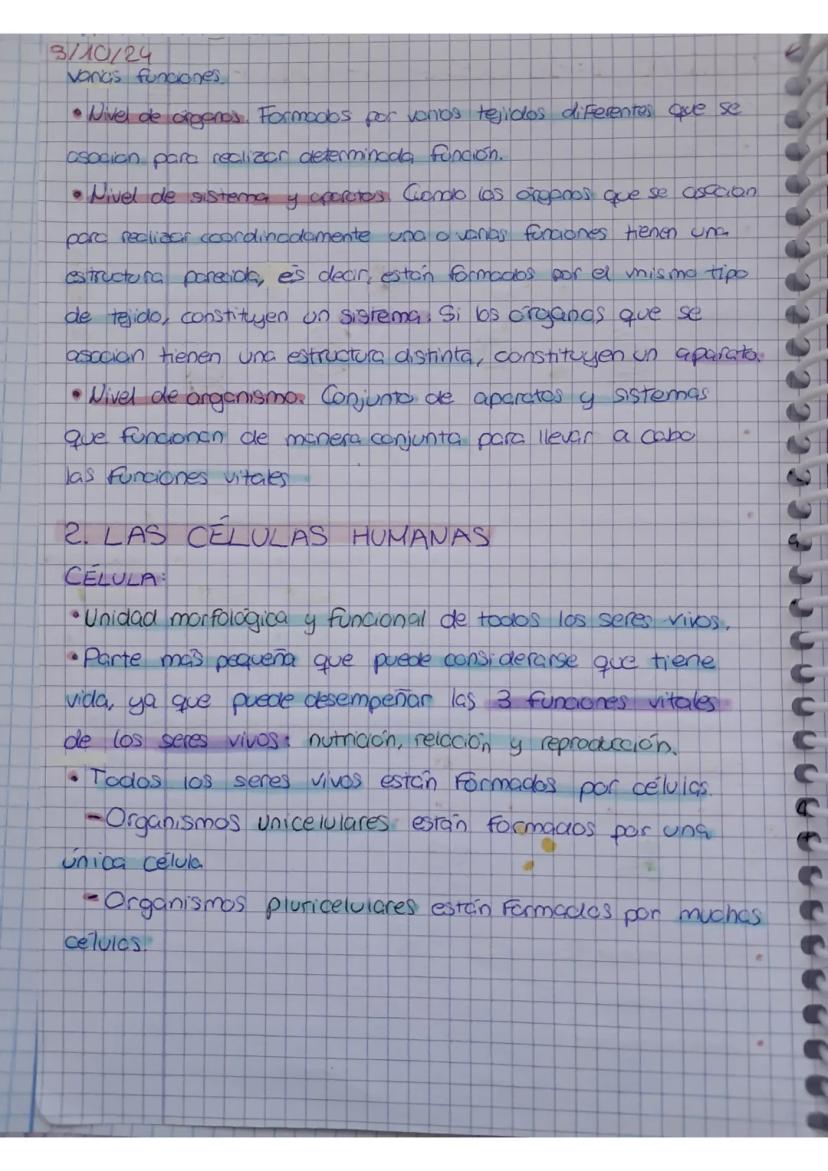 3/10/24
varias funciones.
• Nivel de órganos. Formados por varios tejidos diferentes que se
asocian para realizar determinada función.
• Nivel de sistema y aparatos. Cuando los órganos que se asocian
para realizar coordinadamente una o varias funciones tienen una
estructura parecida, es decir, están formados por el mismo tipo
de tejido, constituyen un sistema. Si los órganos que se
asocian tienen una estructura distinta, constituyen un aparato.
• Nivel de organismo. Conjunto de aparatos y sistemas
que funcionan de manera conjunta para llevar a cabo
las funciones vitales
2. LAS CÉLULAS HUMANAS
CÉLULA:
• Unidad morfológica y funcional de todos los seres vivos.
• Parte más pequeña que puede considerarse que tiene
vida, ya que puede desempeñar las 3 funciones vitales
de los seres vivos: nutrición, relación y reproducción.
• Todos los seres vivos están formados por células.
- Organismos unicelulares están formados por una
única célula
- Organismos pluricelulares están formados por muchas
células.